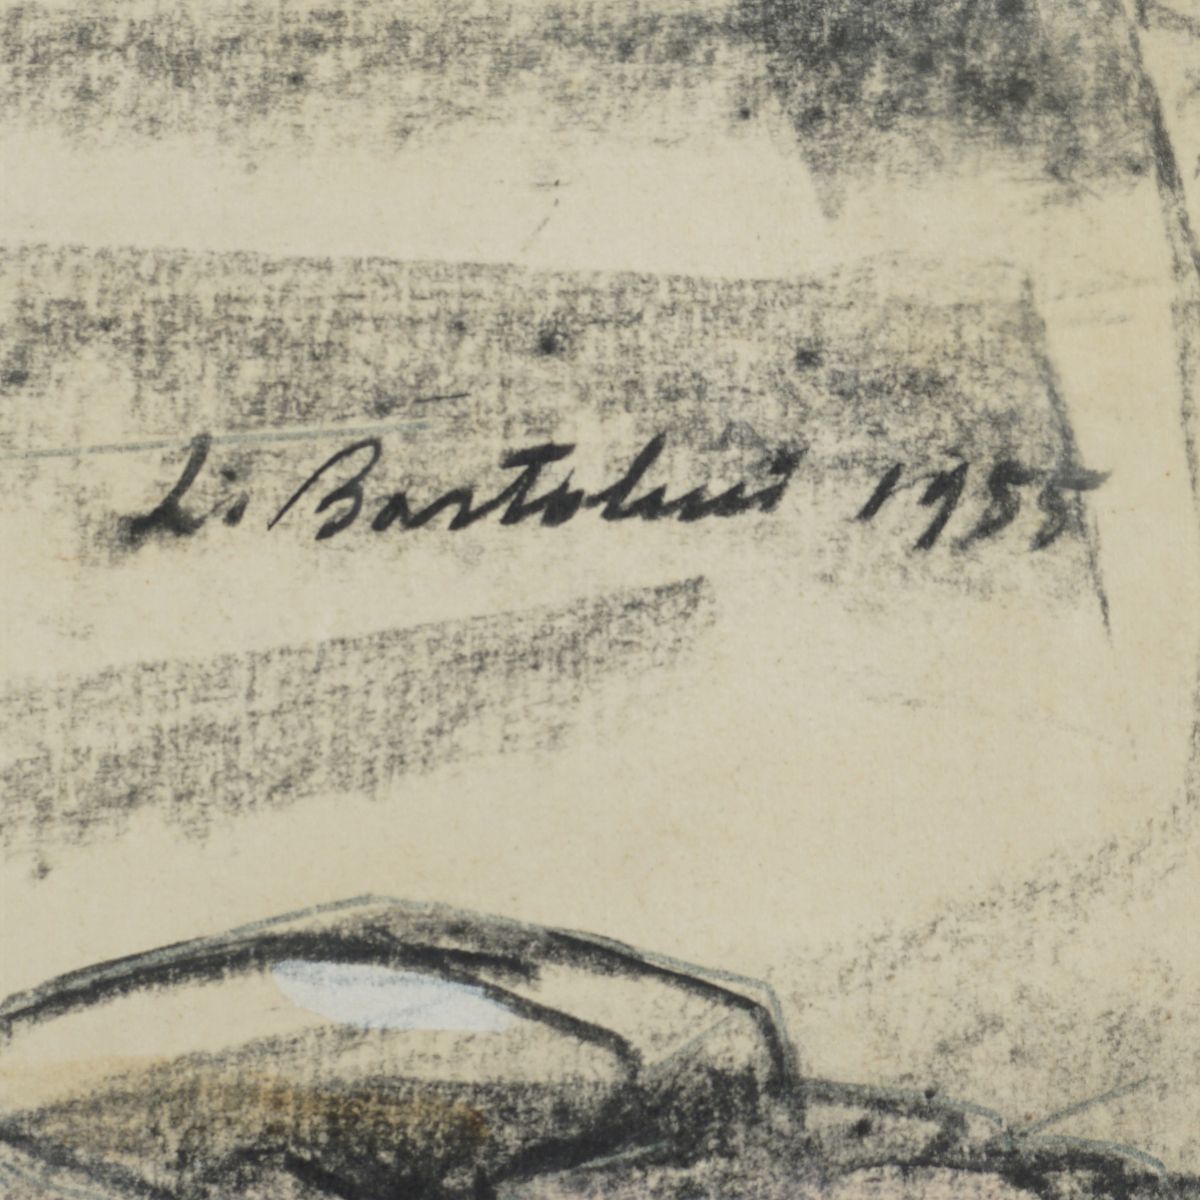 Lis Bartolini 1955